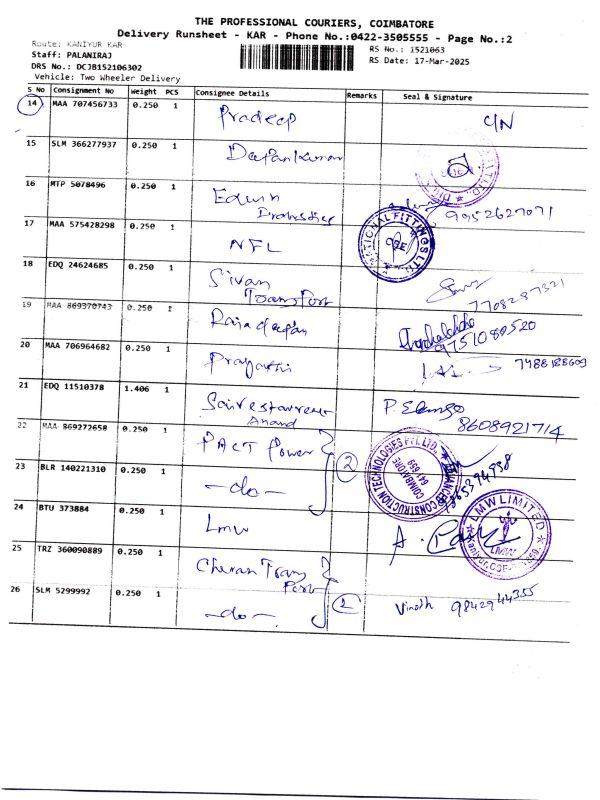 THE PROFESSIONAL COURIERS, COIMBATORE
Delivery Runsheet - KAR - Phone No.:0422-3505555 - Page No.:2
Route: KANIYUR KAR
RS No.: 1521063
Staff: PALANIRAJ
RS Date: 17-Mar-2025
DRS No.: DCJB152106302
Vehicle: Two Wheeler Delivery
S No Consignment No Weight PCS Consignee Details Remarks Seal & Signature
14 MAA 707456733 0.250 1 Pradeep
15 SLM 366277937 0.250 1
16 MTP 5078496 0.250 1 Edwin 9952627071
17 MAA 575428298 0.250 1 NFL NATIONAL FITTINGS LTD
18 EDQ 24624685 0.250 1 Sivan Transport 7708287321
19 MAA 869370743 0.250 1 9751089520
20 MAA 706964682 0.250 1 7488188609
21 EDQ 11510378 1.406 1 Anand P. Elango 8608921714
22 MAA 869272658 0.250 1 PACT Power
23 BLR 140221310 0.250 1 -do- 2 CONSTRUCTION TECHNOLOGIES PVT. LTD. COIMBATORE 641 659
24 BTU 373884 0.250 1 LMW LMW LIMITED
25 TRZ 360090889 0.250 1 Cheran Transport
26 SLM 5299992 0.250 1 -do- 2 Vinoth 9842944355